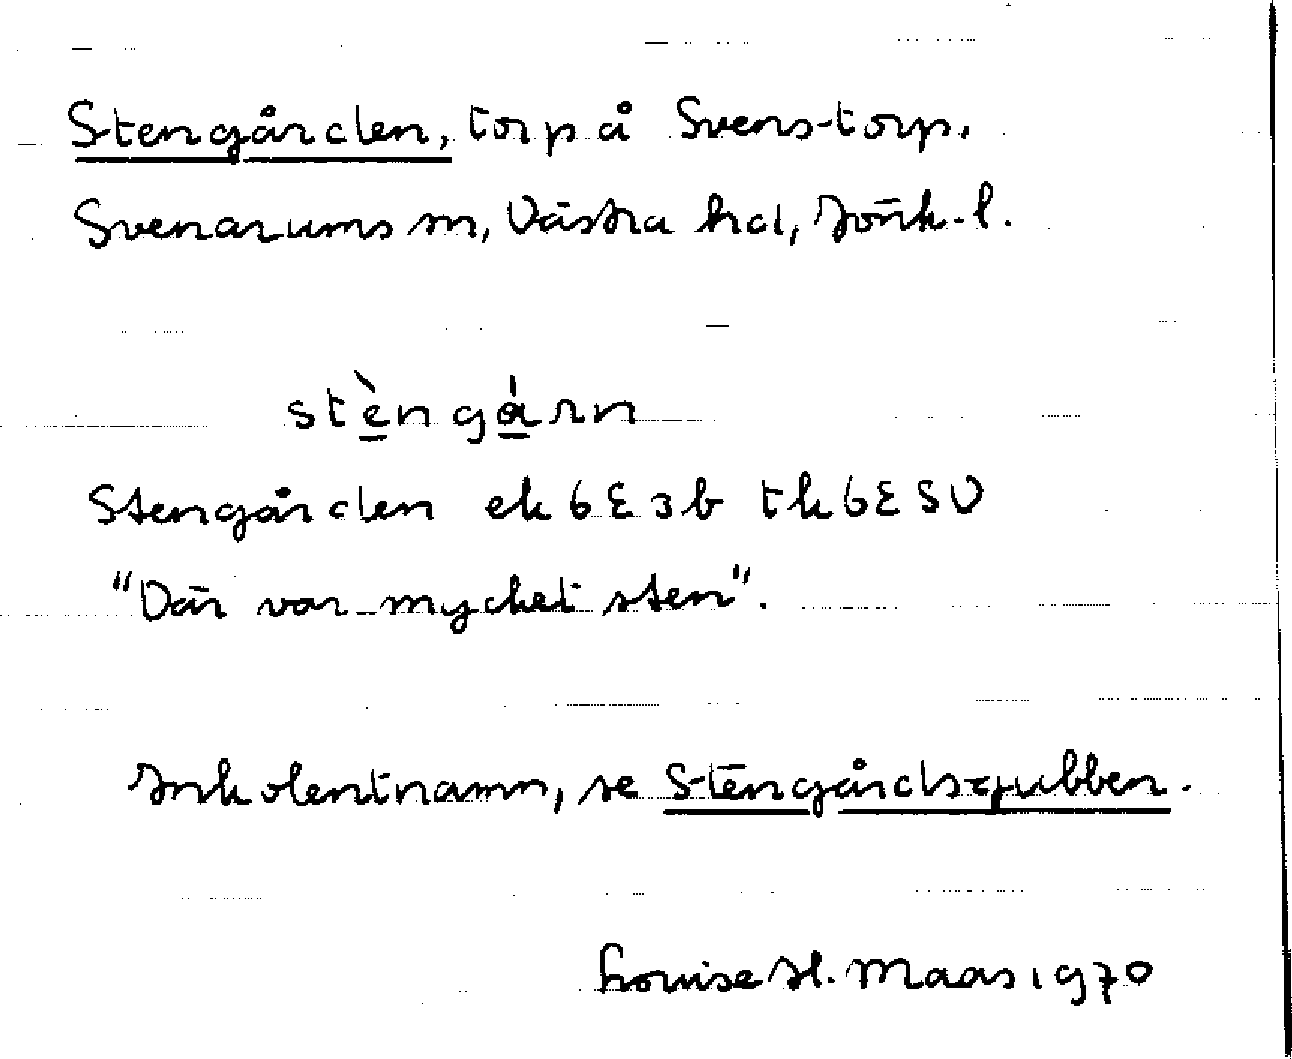 Stengården, torp å Svenstorp.
Svenarums sn, Västra hd, Jönk. l.
stèngárn
Stengården ek 6E3b tk6ESV
"Där var mycket sten".
Inkolentnamn, se Stengårdsgubben.
Louise H. Maas 1970